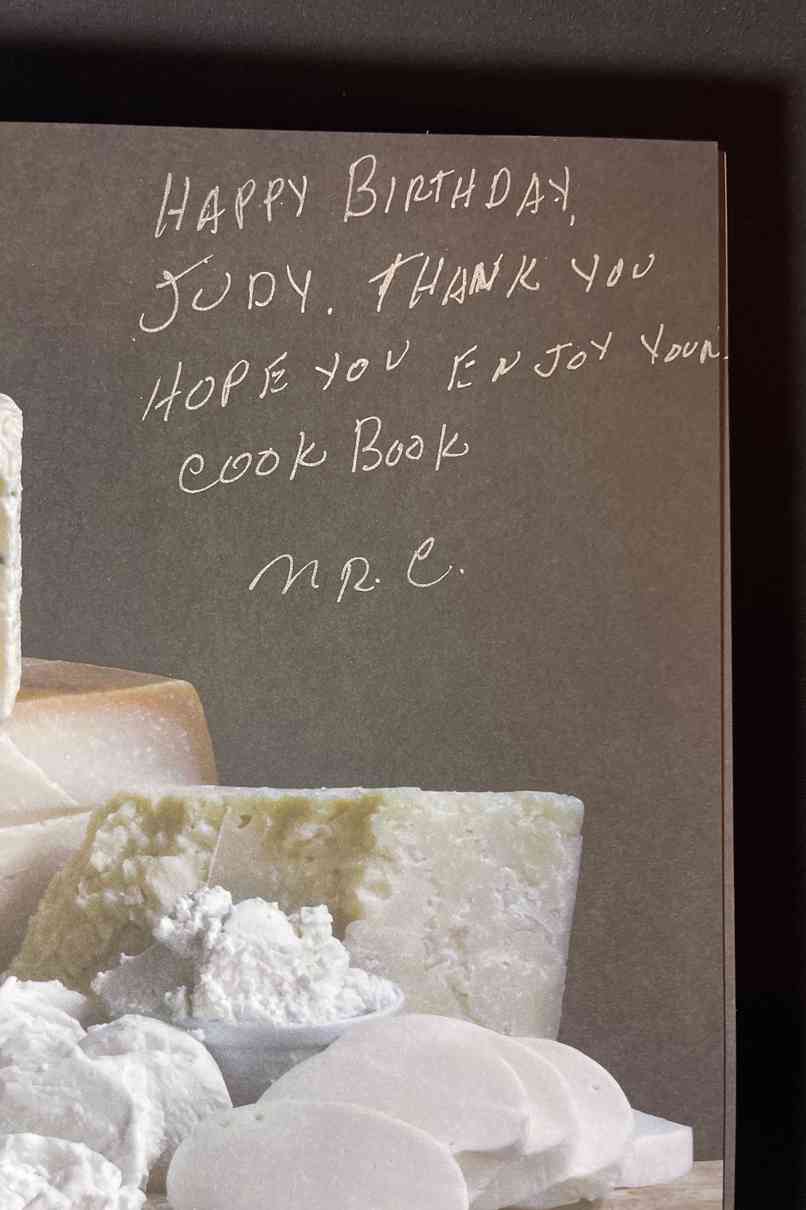 HAPPY BIRTHDAY,
JUDY. THANK YOU
HOPE YOU ENJOY YOUR
COOK BOOK
MR. C.